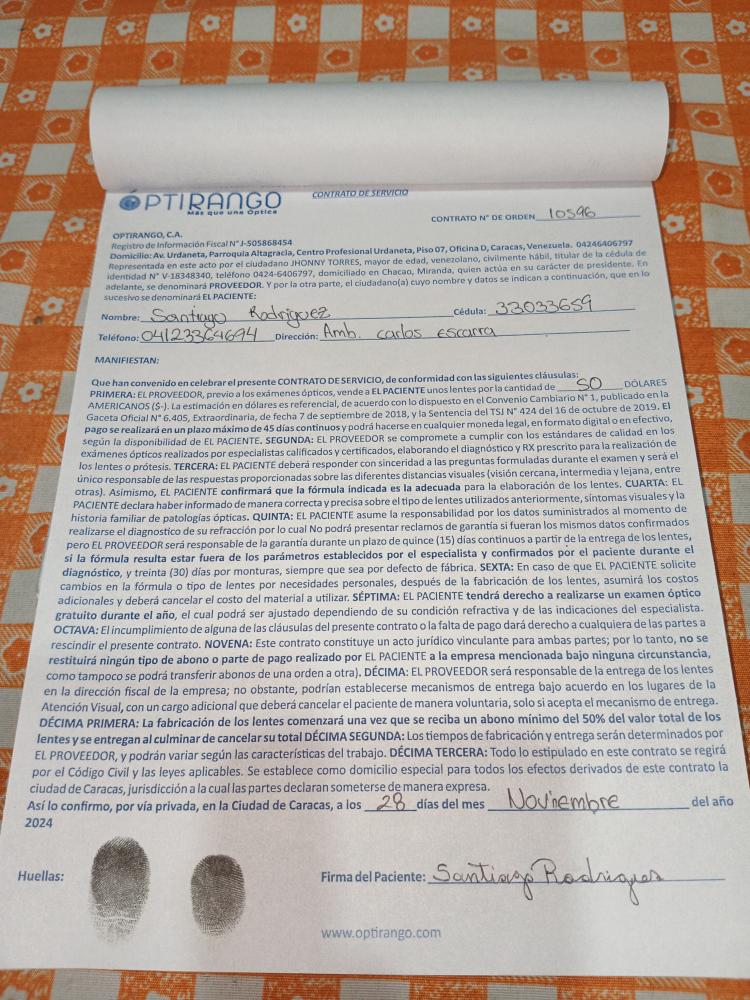 ÓPTIRANGO
Más que una Óptica
CONTRATO DE SERVICIO
CONTRATO N° DE ORDEN 10596
OPTIRANGO, C.A.
Registro de Información Fiscal N° J-505868454
Domicilio: Av. Urdaneta, Parroquia Altagracia, Centro Profesional Urdaneta, Piso 07, Oficina D, Caracas, Venezuela. 04246406797
Representada en este acto por el ciudadano JHONNY TORRES, mayor de edad, venezolano, civilmente hábil, titular de la cédula de
identidad N° V-18348340, teléfono 0424-6406797, domiciliado en Chacao, Miranda, quien actúa en su carácter de presidente. En
adelante, se denominará PROVEEDOR. Y por la otra parte, el ciudadano(a) cuyo nombre y datos se indican a continuación, que en lo
sucesivo se denominará EL PACIENTE:
Nombre: Santiago Rodriguez Cédula: 33033659
Teléfono: 04123364694 Dirección: Amb. carlos escarra
MANIFIESTAN:
Que han convenido en celebrar el presente CONTRATO DE SERVICIO, de conformidad con las siguientes cláusulas:
PRIMERA: EL PROVEEDOR, previo a los exámenes ópticos, vende a EL PACIENTE unos lentes por la cantidad de 50 DÓLARES
AMERICANOS ($-). La estimación en dólares es referencial, de acuerdo con lo dispuesto en el Convenio Cambiario N° 1, publicado en la
Gaceta Oficial N° 6.405, Extraordinaria, de fecha 7 de septiembre de 2018, y la Sentencia del TSJ N° 424 del 16 de octubre de 2019. El
pago se realizará en un plazo máximo de 45 días continuos y podrá hacerse en cualquier moneda legal, en formato digital o en efectivo,
según la disponibilidad de EL PACIENTE. SEGUNDA: EL PROVEEDOR se compromete a cumplir con los estándares de calidad en los
exámenes ópticos realizados por especialistas calificados y certificados, elaborando el diagnóstico y RX prescrito para la realización de
los lentes o prótesis. TERCERA: EL PACIENTE deberá responder con sinceridad a las preguntas formuladas durante el examen y será el
único responsable de las respuestas proporcionadas sobre las diferentes distancias visuales (visión cercana, intermedia y lejana, entre
otras). Asimismo, EL PACIENTE confirmará que la fórmula indicada es la adecuada para la elaboración de los lentes. CUARTA: EL
PACIENTE declara haber informado de manera correcta y precisa sobre el tipo de lentes utilizados anteriormente, síntomas visuales y la
historia familiar de patologías ópticas. QUINTA: EL PACIENTE asume la responsabilidad por los datos suministrados al momento de
realizarse el diagnostico de su refracción por lo cual No podrá presentar reclamos de garantía si fueran los mismos datos confirmados
pero EL PROVEEDOR será responsable de la garantía durante un plazo de quince (15) días continuos a partir de la entrega de los lentes,
si la fórmula resulta estar fuera de los parámetros establecidos por el especialista y confirmados por el paciente durante el
diagnóstico, y treinta (30) días por monturas, siempre que sea por defecto de fábrica. SEXTA: En caso de que EL PACIENTE solicite
cambios en la fórmula o tipo de lentes por necesidades personales, después de la fabricación de los lentes, asumirá los costos
adicionales y deberá cancelar el costo del material a utilizar. SÉPTIMA: EL PACIENTE tendrá derecho a realizarse un examen óptico
gratuito durante el año, el cual podrá ser ajustado dependiendo de su condición refractiva y de las indicaciones del especialista.
OCTAVA: El incumplimiento de alguna de las cláusulas del presente contrato o la falta de pago dará derecho a cualquiera de las partes a
rescindir el presente contrato. NOVENA: Este contrato constituye un acto jurídico vinculante para ambas partes; por lo tanto, no se
restituirá ningún tipo de abono o parte de pago realizado por EL PACIENTE a la empresa mencionada bajo ninguna circunstancia,
como tampoco se podrá transferir abonos de una orden a otra). DÉCIMA: EL PROVEEDOR será responsable de la entrega de los lentes
en la dirección fiscal de la empresa; no obstante, podrían establecerse mecanismos de entrega bajo acuerdo en los lugares de la
Atención Visual, con un cargo adicional que deberá cancelar el paciente de manera voluntaria, solo si acepta el mecanismo de entrega.
DÉCIMA PRIMERA: La fabricación de los lentes comenzará una vez que se reciba un abono mínimo del 50% del valor total de los
lentes y se entregan al culminar de cancelar su total DÉCIMA SEGUNDA: Los tiempos de fabricación y entrega serán determinados por
EL PROVEEDOR, y podrán variar según las características del trabajo. DÉCIMA TERCERA: Todo lo estipulado en este contrato se regirá
por el Código Civil y las leyes aplicables. Se establece como domicilio especial para todos los efectos derivados de este contrato la
ciudad de Caracas, jurisdicción a la cual las partes declaran someterse de manera expresa.
Así lo confirmo, por vía privada, en la Ciudad de Caracas, a los 28 días del mes Noviembre del año
2024
Huellas:
Firma del Paciente: Santiago Rodriguez
www.optirango.com